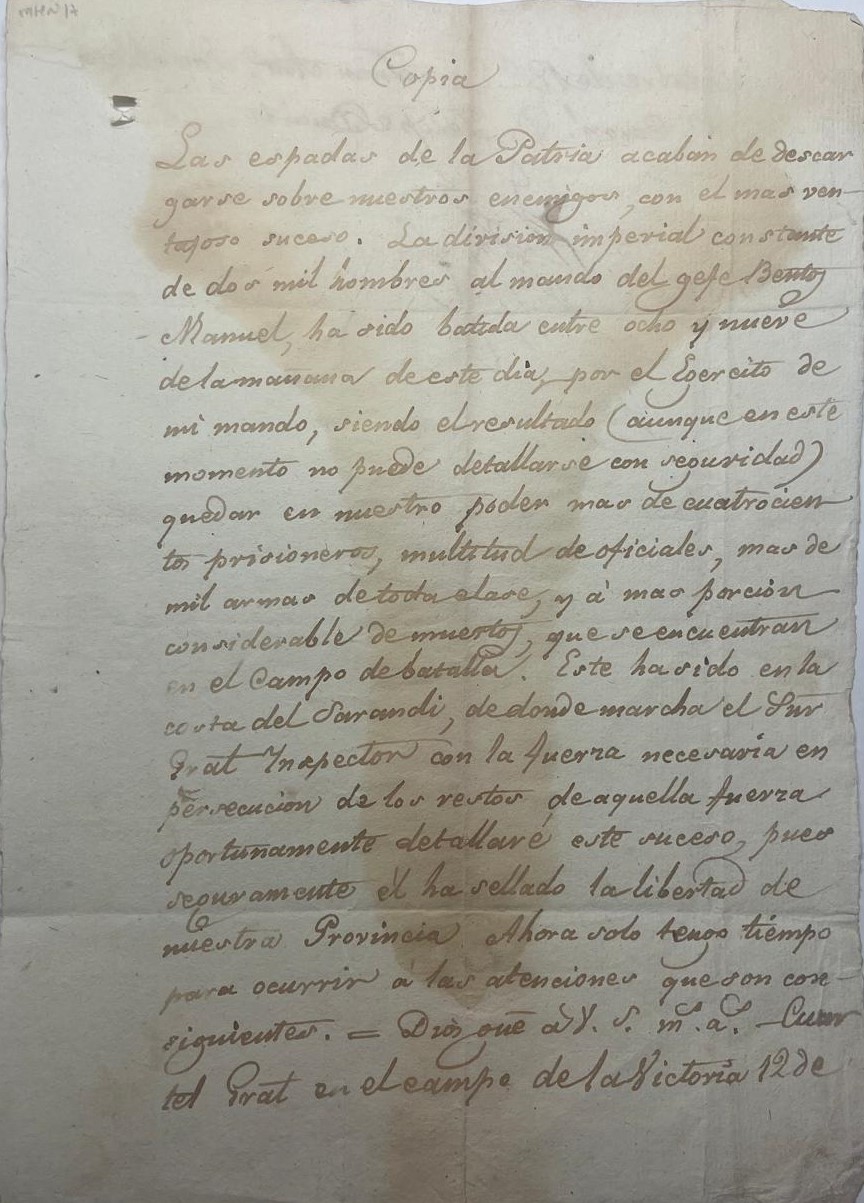 Copia
Las espadas de la Patria acaban de descar
garse sobre nuestros enemigos, con el mas ven-
tajoso suceso. La division imperial constante
de dos mil hombres al mando del gefe Bentos
Manuel, ha sido batida entre ocho y nueve
de la mañana de este dia, por el Egercito de
mi mando, siendo el resultado (aunque en este
momento no puede detallarse con seguridad)
quedar en nuestro poder mas de cuatrocien
tos prisioneros, multitud de oficiales, mas de
mil armas de toda clase, y á mas porcion
considerable de muertos, que se encuentran
en el Campo de batalla. Este ha sido en la
costa del Sarandi, de donde marcha el Sŭr
Gral Inspector con la fuerza necesaria en
persecucion de los restos de aquella fuerza
oportunamente detallaré este suceso, pues
seguramente él ha sellado la libertad de
nuestra Provincia Ahora solo tengo tiempo
para ocurrir á las atenciones que son con-
siguientes. = Dios gue á V. S. ms. as. - Cuar
tel Gral en el campo de la Victoria 12 de